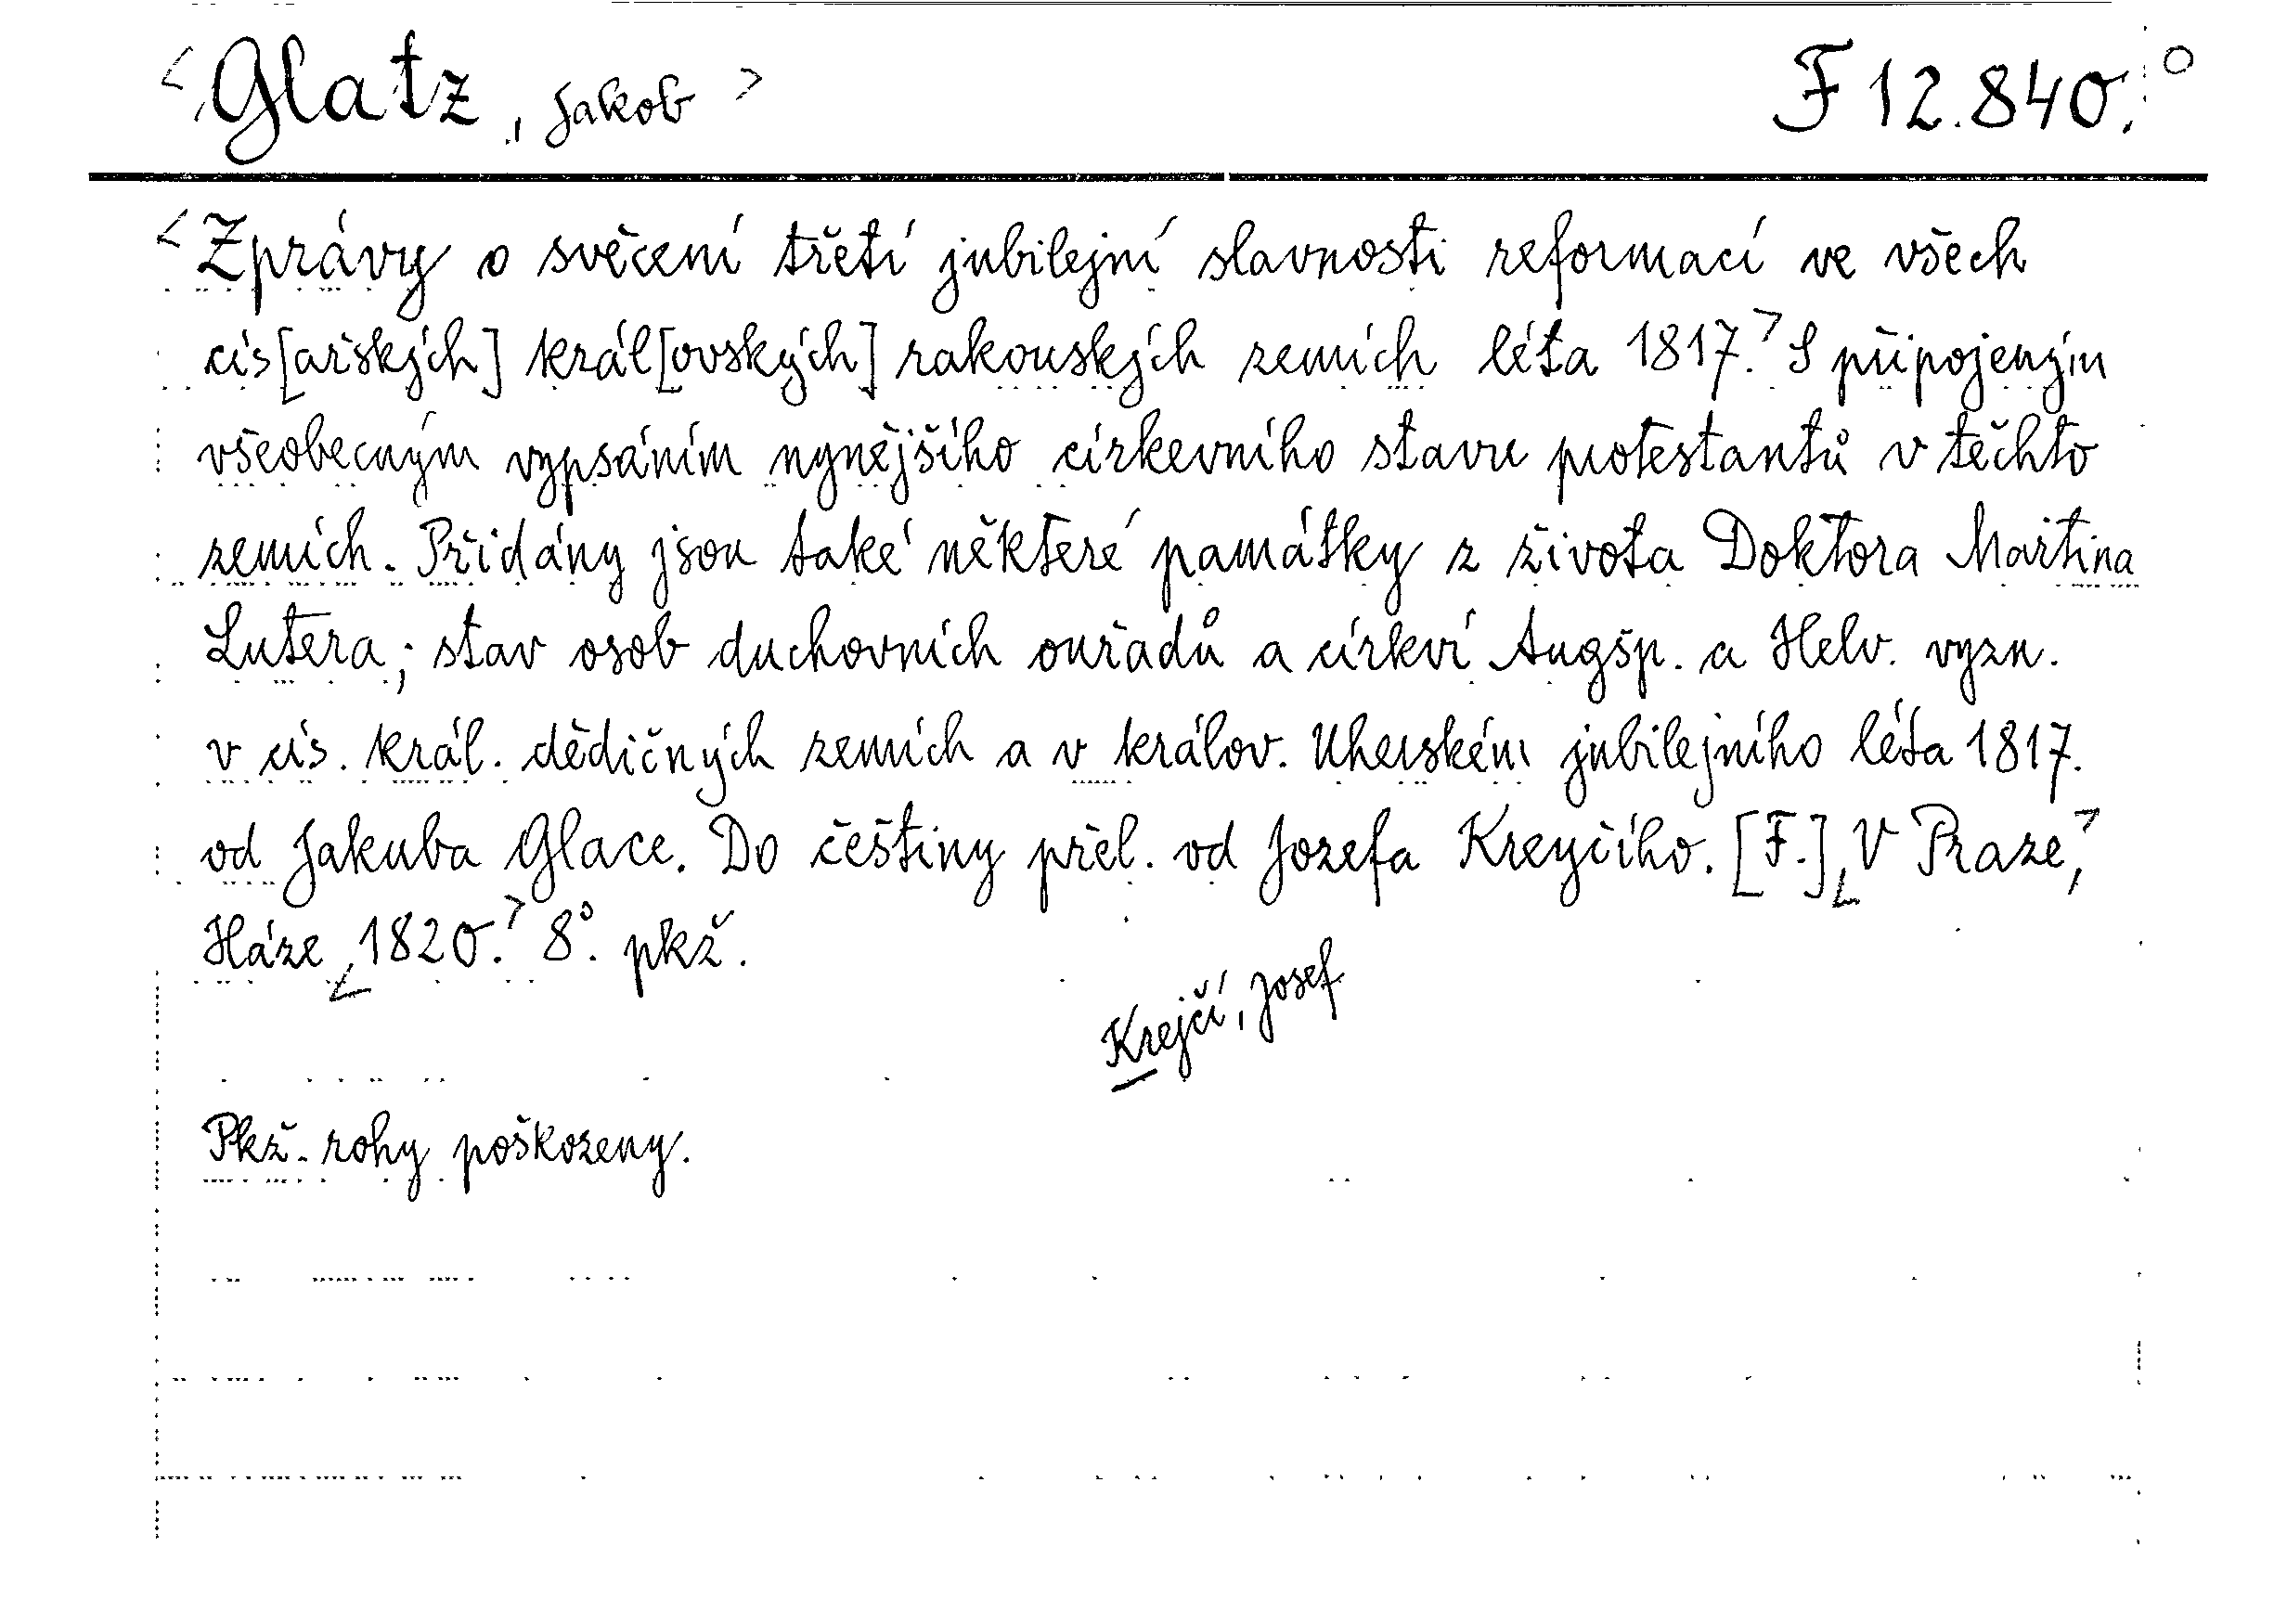 <Glatz, Jakob> F 12.840.°
<Zprávy o svěcení třetí jubilejní slavnosti reformací ve všech
cís[ařských] král[ovských] rakouských zemích léta 1817.> S připojeným
všeobecným vypsáním nynějšího církevního stavu protestantů v těchto
zemích. Přidány jsou také některé památky z života Doktora Martina
Lutera; stav osob duchovních ouřadů a církví Augšp. a Helv. vyzn.
v cís. král. dědičných zemích a v králov. Uherském jubilejního léta 1817.
od Jakuba Glace. Do češtiny přel. od Jozefa Kreyčího. [F.] <V Praze,>
Háze <1820.> 8°. pkž.
Krejčí, Josef
Pkž. rohy poškozeny.